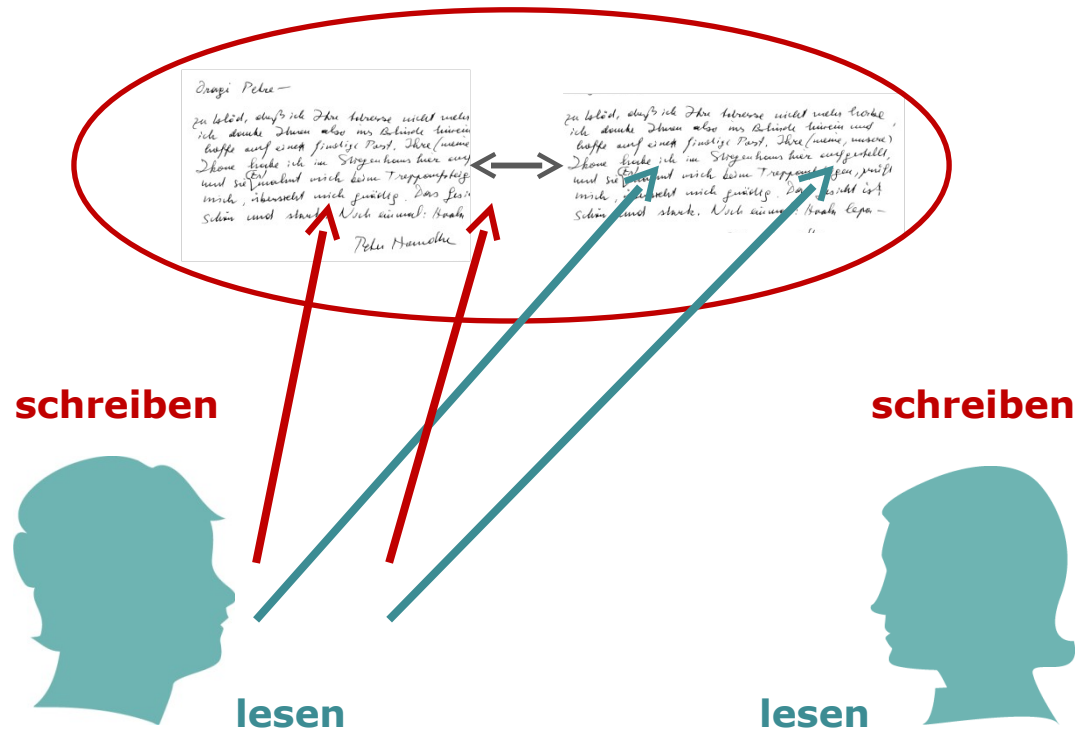 Dragi Petre—
zu blöd, daß ich Ihre Adresse nicht mehr
ich danke Ihnen also ins Blinde hinein
hoffe auf einen günstige Post. Ihre (meine,
Ikone habe ich im Stiegenhaus hier auf
und sie (Er) mahnt mich beim Treppensteig
mich, übersieht mich gnädig. Das Gesi
schön und stark. Noch einmal: Hvala
Peter Handke
zu blöd, daß ich Ihre Adresse nicht mehr habe,
ich danke Ihnen also ins Blinde hinein und
hoffe auf einen günstige Post. Ihre (meine, unsere)
Ikone habe ich im Stiegenhaus hier aufgestellt,
und sie (Er) mahnt mich beim Treppensteigen, prüft
mich, übersieht mich gnädig. Das Gesicht ist
schön und stark. Noch einmal: Hvala lepa—
schreiben schreiben
lesen lesen